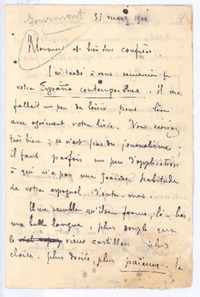 Gourmont
31 mars 190
Monsieur et très cher confrère
J'ai tardé à vous remercier pour
votre España contemporánea. Il me
fallait un peu de loisir pour lire
avec agrément votre livre. Vous écrivez
très bien ; ce n'est pas du journalisme,
il faut parfois un peu d'application
à qui n'a pas une grande habitude
de votre espagnol
Il me semble qu'il se forme, là-bas,
une belle langue, plus souple que
le vieux castillan plus
claire, plus droite, plus